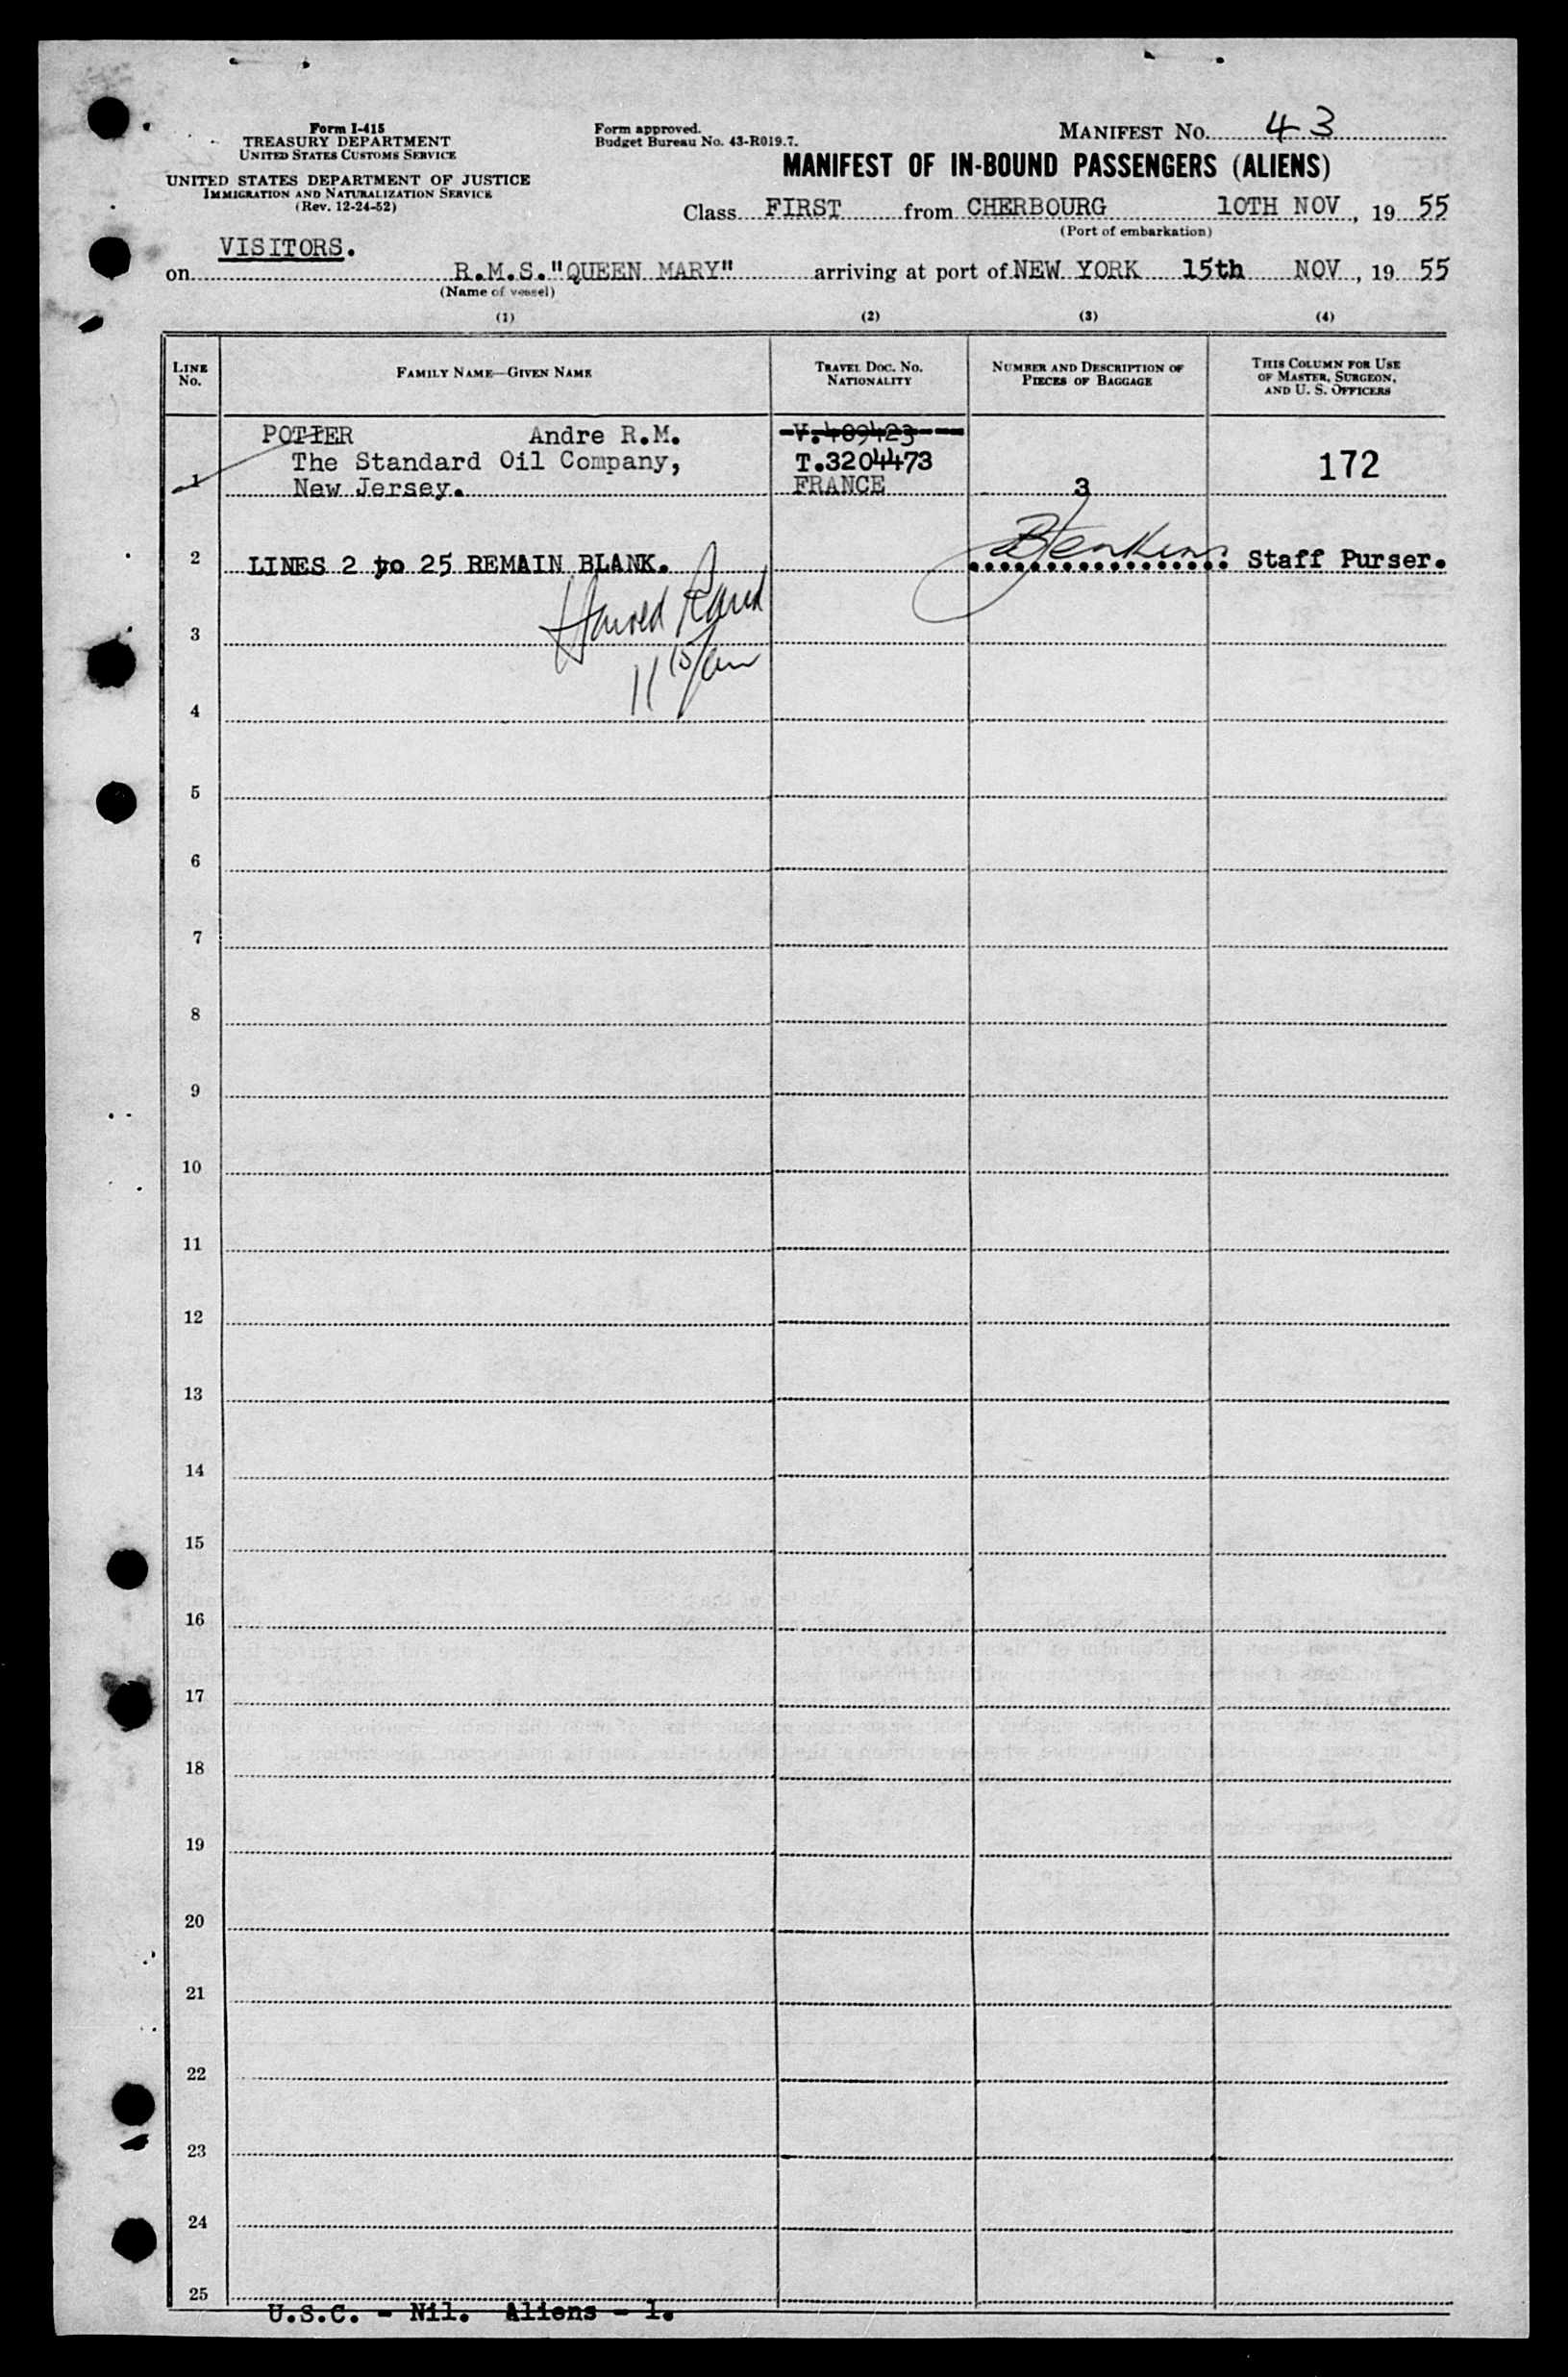 Form I-415
TREASURY DEPARTMENT
UNITED STATES CUSTOMS SERVICE
UNITED STATES DEPARTMENT OF JUSTICE
IMMIGRATION AND NATURALIZATION SERVICE
(Rev. 12-24-52)
Form approved.
Budget Bureau No. 43-R019.7.
MANIFEST NO. 43
MANIFEST OF IN-BOUND PASSENGERS (ALIENS)
Class FIRST from CHERBOURG 10TH NOV, 19 55
(Port of embarkation)
VISITORS.
on R.M.S."QUEEN MARY" arriving at port of NEW YORK 15th NOV, 19 55
(Name of vessel)
(1) (2) (3) (4)
LINE No. FAMILY NAME—GIVEN NAME TRAVEL DOC. NO. NATIONALITY NUMBER AND DESCRIPTION OF PIECES OF BAGGAGE THIS COLUMN FOR USE OF MASTER, SURGEON, AND U. S. OFFICERS
POTIER Andre R.M. V.409423
The Standard Oil Company, T.3204473 172
1 New Jersey. FRANCE 3
2 LINES 2 to 25 REMAIN BLANK. Jenkins Staff Purser.
Harold Rand
3
11 10/am
4
5
6
7
8
9
10
11
12
13
14
15
16
17
18
19
20
21
22
23
24
25
U.S.C. - Nil. Aliens - 1.